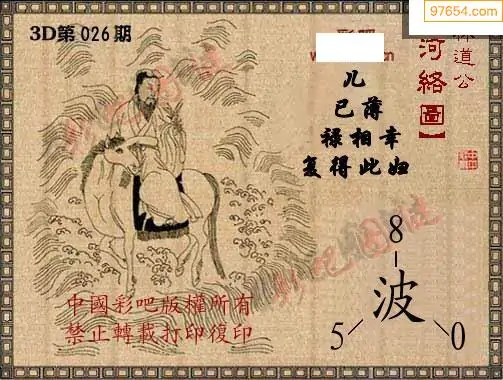 97654.com
3D第026期
林道公
河絡圖】
儿
已薄
禄相幸
复得此妇
彩吧圖社
彩吧圖社
8
波
5
0
中國彩吧版權所有
禁止轉載打印復印